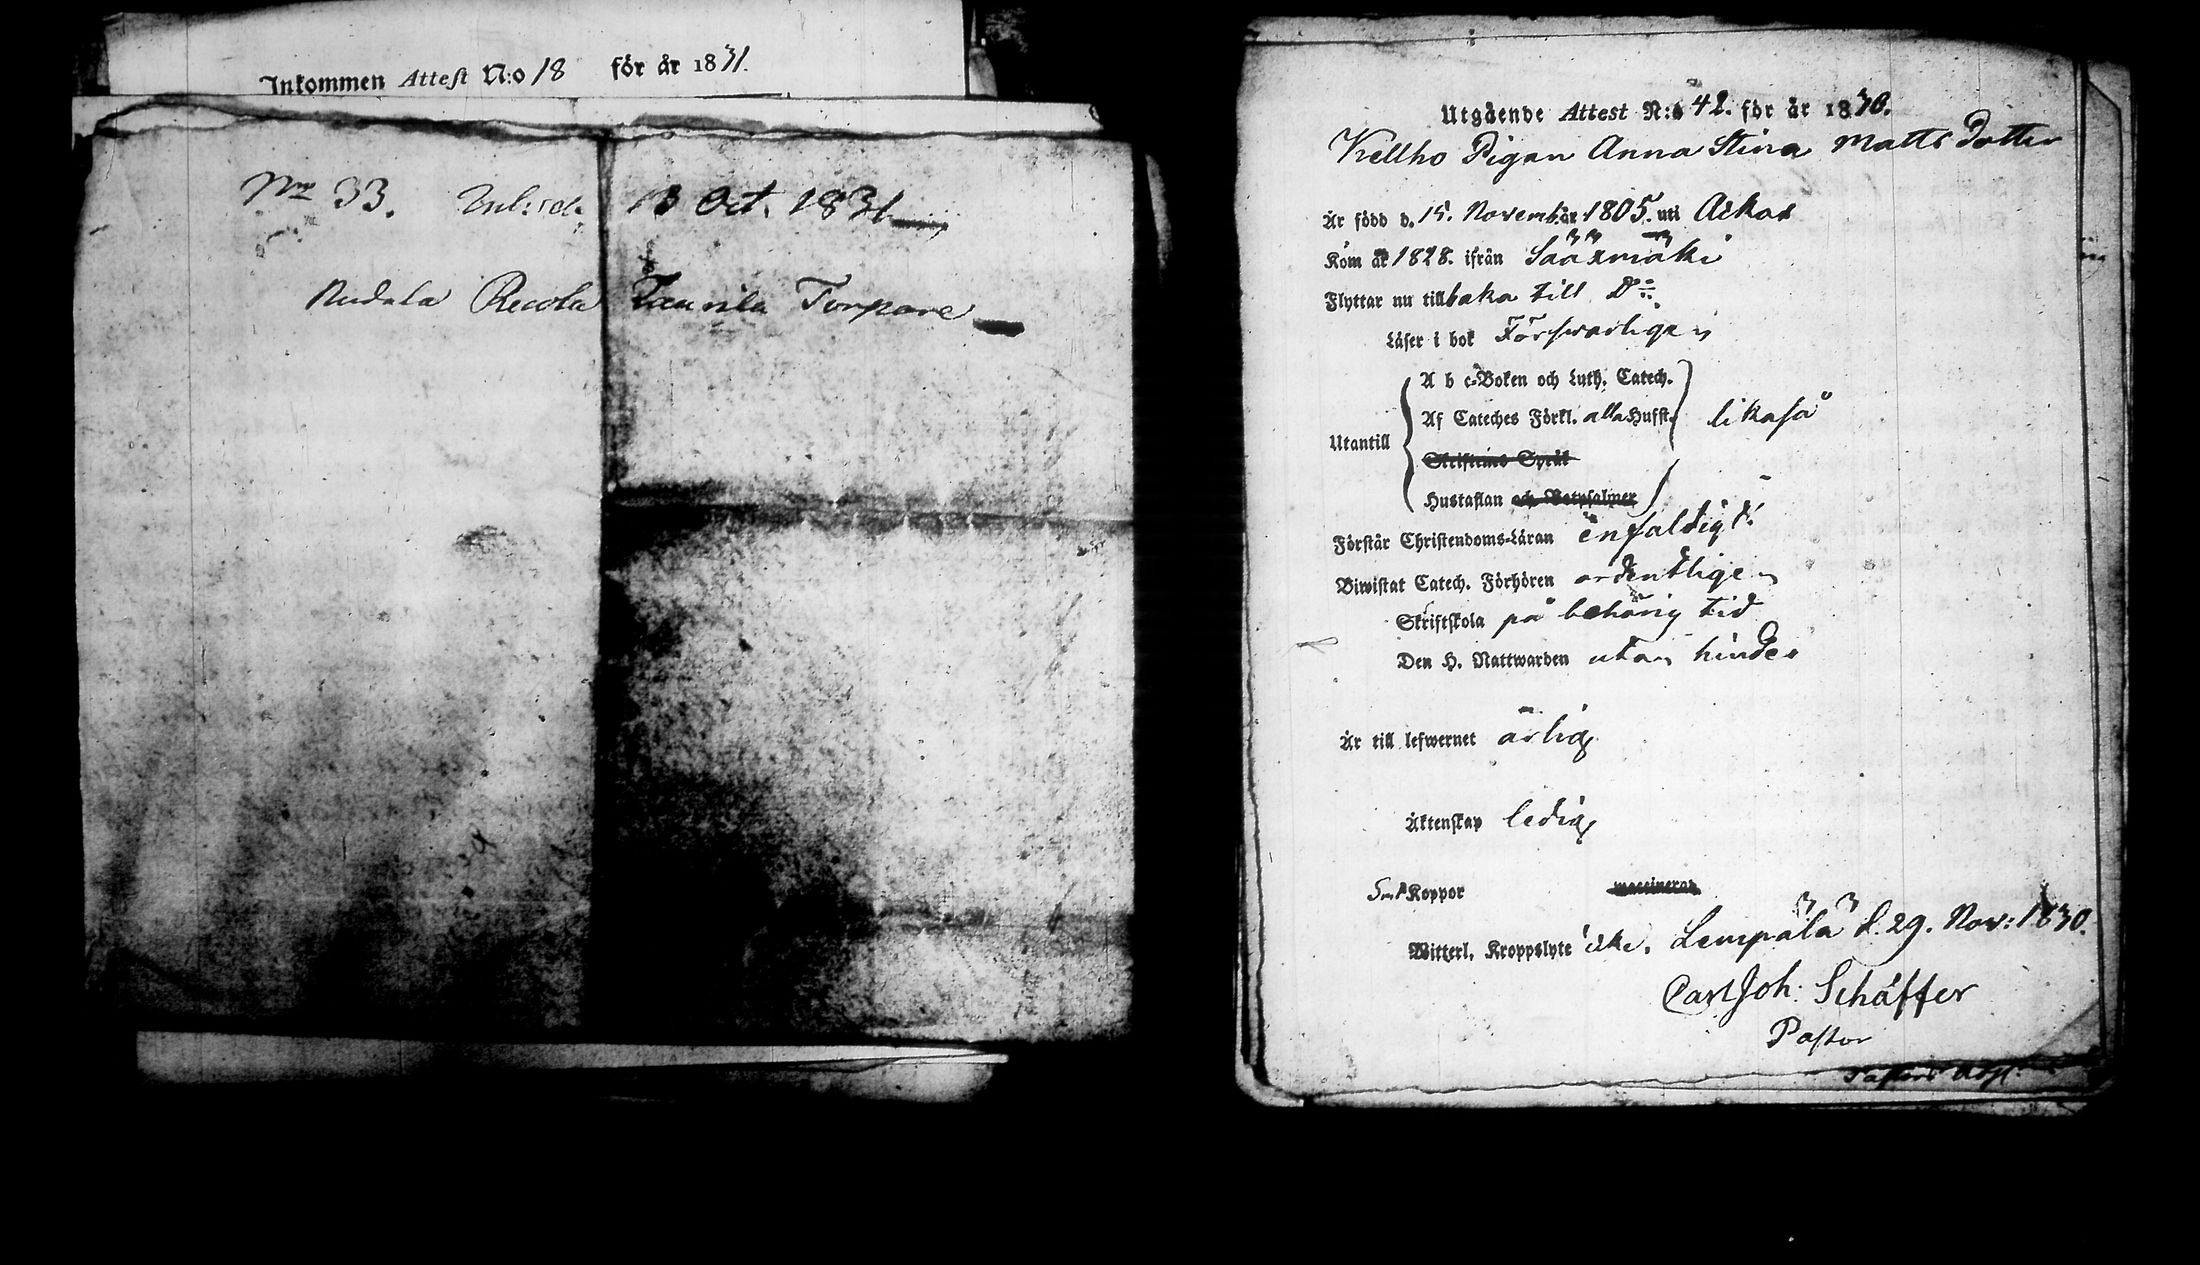 Inkommen Attest N:o 18 för år 1831.
Nro 33. 13 Oct. 1831
Nudala Recola Taurila Torpare
Utgående Attest N:o 42. för år 1830.
Pigan Anna Stina Matts Dotter
Är född d. 15. Novemb. år 1805. uti Ackas
Kom år 1828. ifrån Sääxmäki
Flyttar nu tillbaka till Do
Läser i bok Förswarligen
Utantill
A b c-Boken och Luth. Catech.
Af Cateches Förkl. alla Hufst. likaså
Skriftenes Språk
Hustaflan och Botpsalmer
Förstår Christendoms-Läran enfaldigt.
Biwistat Catech. Förhören ordentligen
Skriftskola på behörig tid
Den H. Nattwarden utan hinder
Är till lefwernet ärlig
Äktenskap ledig
Koppor vaccinerad
Witterl. Kroppslyte icke. Lempälä d. 29. Nov: 1830.
Carl Joh: Schäffer
Pastor